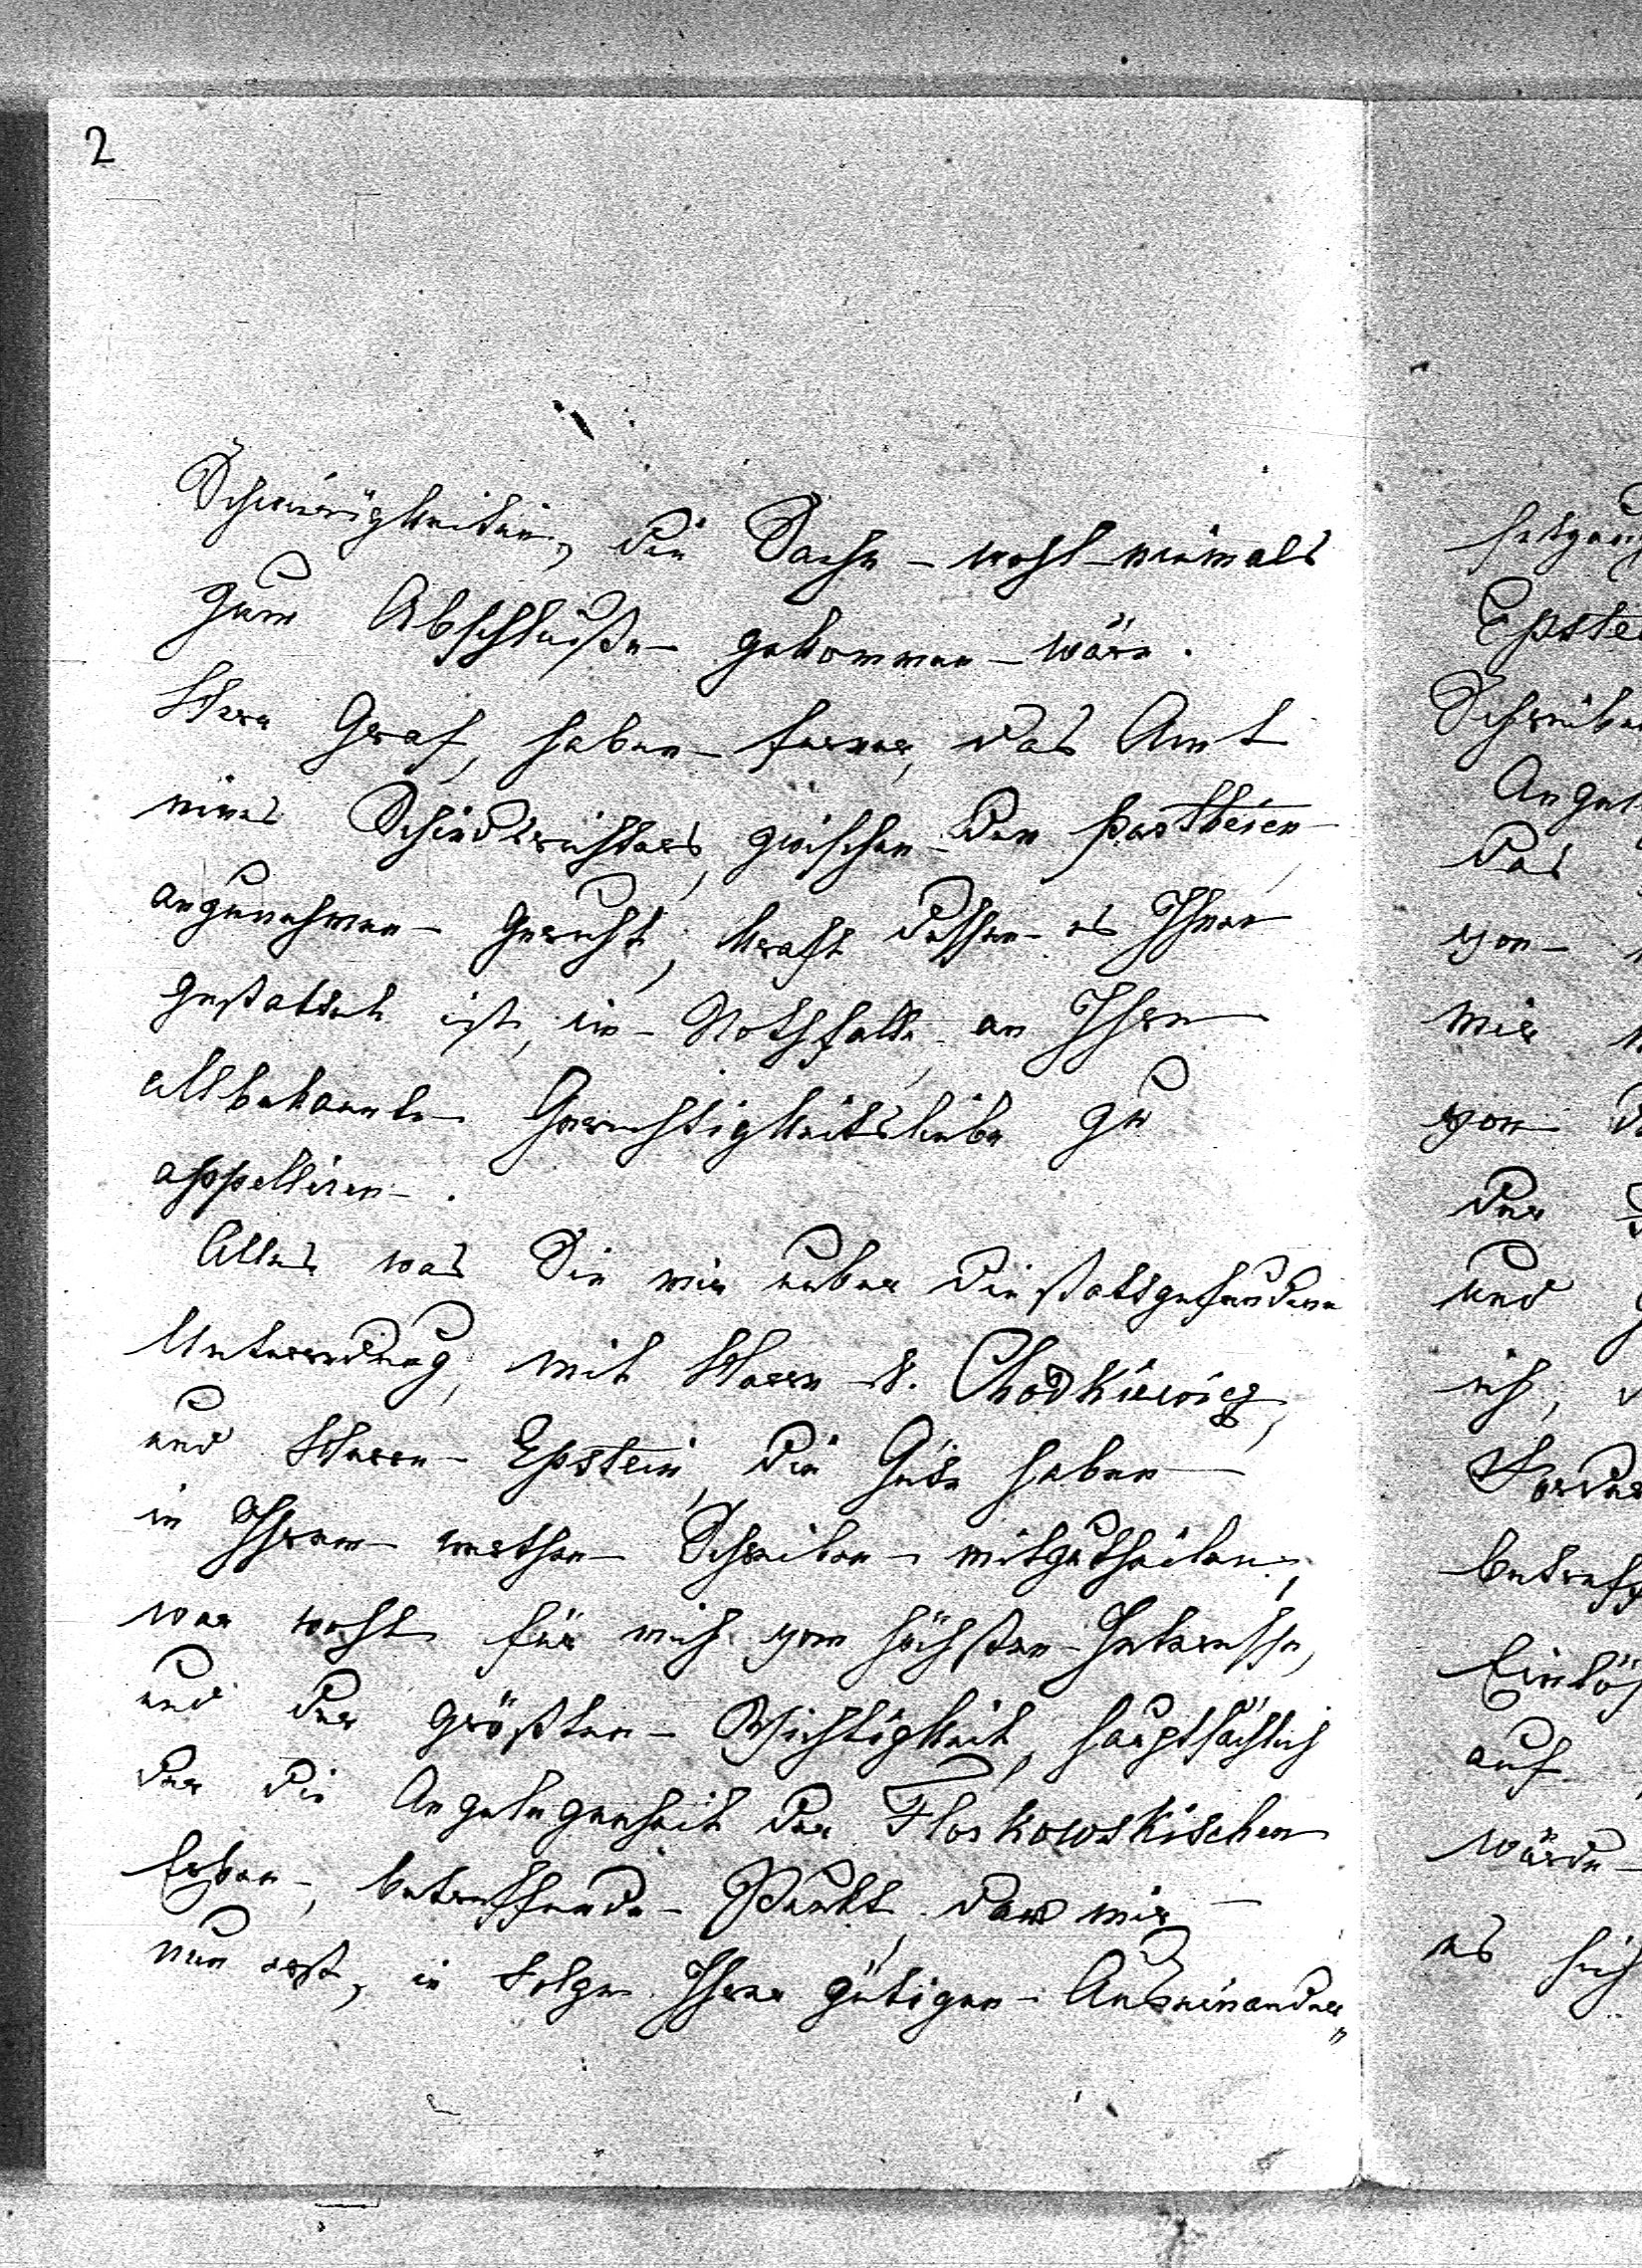 2
Schwierigkeiten, die Sache wohl niemals
zum Abschluße gekommen wäre.
Herr Graf, haben ferner, das Amt
eines Schiedsrichters, zwischen den Partheien
anzunehmen geruht, kraft dessen es Ihnen
gestattet ist, im Nothfalle, an Ihre
allbekannte Gerechtigkeitsliebe zu
appelliren.
Alles was Sie mir ueber die stattgefundene
Unterredung, mit Herrn v. Chodkiewicz,
und Herrn Epstein, die Güte haben
in Ihrem werthen Schreiben mitzutheilen,
war wohl für mich vom höchsten Interesse,
und der größten Wichtigkeit, hauptsächlich
der die Angelegenheit der Floskowskischen
Erben, betreffende Punkt, der mir
nun erst, in Folge Ihrer gütigen Auseinander„
Epste
Schreiben
Angel
das
von
mir
von
der
und
ich,
auf
würde
es sich